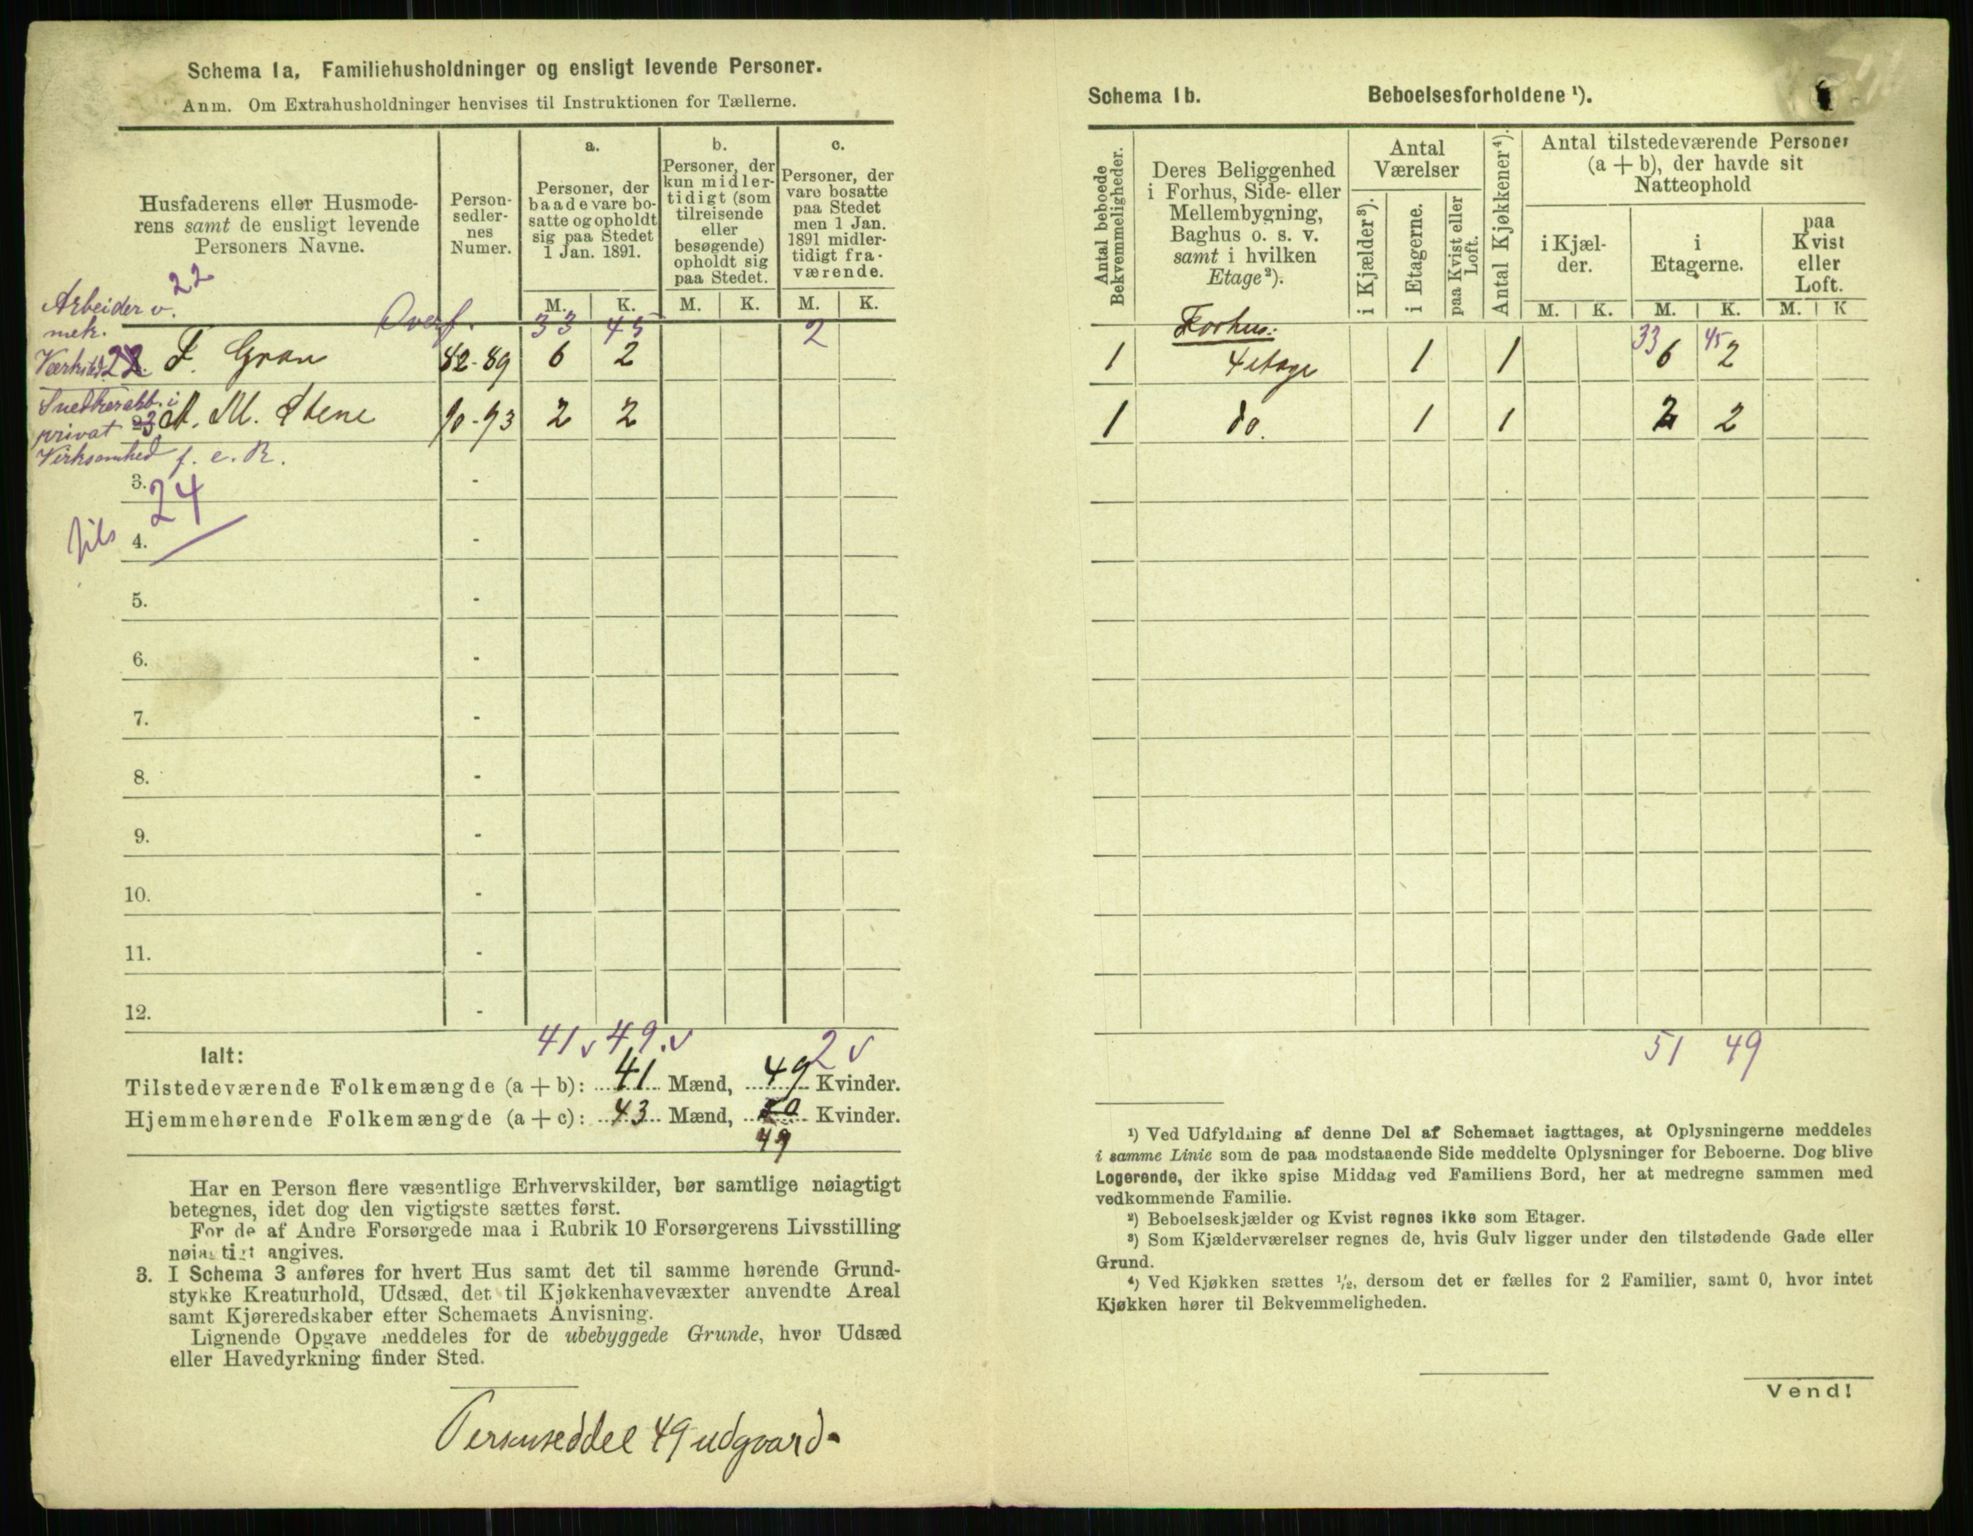 Schema 1a, Familiehusholdninger og ensligt levende Personer.
Anm. Om Extrahusholdninger henvises til Instruktionen for Tællerne.
Husfaderens eller Husmode-
rens samt de ensligt levende
Personers Navne.
Person-
sedler-
nes
Numer.
a.
Personer, der
baade vare bo-
satte og opholdt
sig paa Stedet
1 Jan. 1891.
b.
Personer, der
kun midler-
tidigt (som
tilreisende
eller
besøgende)
opholdt sig
paa Stedet.
c.
Personer, der
vare bosatte
paa Stedet
men 1 Jan.
1891 midler-
tidigt fra-
værende.
M. K. M. K. M. K.
22
Arbeider v.
mek. Overf. 33 45 2
Værksted 22. F. Gran 82-89 6 2
Snedkerarb. i
privat 23 M. M. Stene 90-93 2 2
Virksomhed f. e. R.
3. -
24
4. -
5. -
6. -
7. -
8. -
9. -
10. -
11. -
12. -
41 v 49. v 2 v
Ialt:
Tilstedeværende Folkemængde (a + b): 41 Mænd, 49 Kvinder.
Hjemmehørende Folkemængde (a + c): 43 Mænd, 50 Kvinder.
49
Har en Person flere væsentlige Erhvervskilder, bør samtlige nøiagtigt
betegnes, idet dog den vigtigste sættes først.
For de af Andre Forsørgede maa i Rubrik 10 Forsørgerens Livsstilling
nøiagtigt angives.
3. I Schema 3 anføres for hvert Hus samt det til samme hørende Grund-
stykke Kreaturhold, Udsæd, det til Kjøkkenhavevæxter anvendte Areal
samt Kjøreredskaber efter Schemaets Anvisning.
Lignende Opgave meddeles for de ubebyggede Grunde, hvor Udsæd
eller Havedyrkning finder Sted.
Personseddel 49 udgaard.
Schema 1b. Beboelsesforholdene ¹).
Antal beboede
Bekvemmeligheder.
Deres Beliggenhed
i Forhus, Side- eller
Mellembygning,
Baghus o. s. v.
samt i hvilken
Etage²).
Antal
Værelser
i Kjælder³).
i Etagerne.
paa Kvist eller
Loft.
Antal Kjøkkener⁴).
Antal tilstedeværende Personer
(a + b), der havde sit
Natteophold
i Kjæl-
der.
i
Etagerne.
paa
Kvist
eller
Loft.
M. K. M. K. M. K
Forhus: 33 45
1 4 etage 1 1 6 2
1 do. 1 1 2 2
51 49
¹) Ved Udfyldning af denne Del af Schemaet iagttages, at Oplysningerne meddeles
i samme Linie som de paa modstaaende Side meddelte Oplysninger for Beboerne. Dog blive
Logerende, der ikke spise Middag ved Familiens Bord, her at medregne sammen med
vedkommende Familie.
²) Beboelseskjælder og Kvist regnes ikke som Etager.
³) Som Kjælderværelser regnes de, hvis Gulv ligger under den tilstødende Gade eller
Grund.
⁴) Ved Kjøkken sættes ½, dersom det er fælles for 2 Familier, samt 0, hvor intet
Kjøkken hører til Bekvemmeligheden.
Vend!